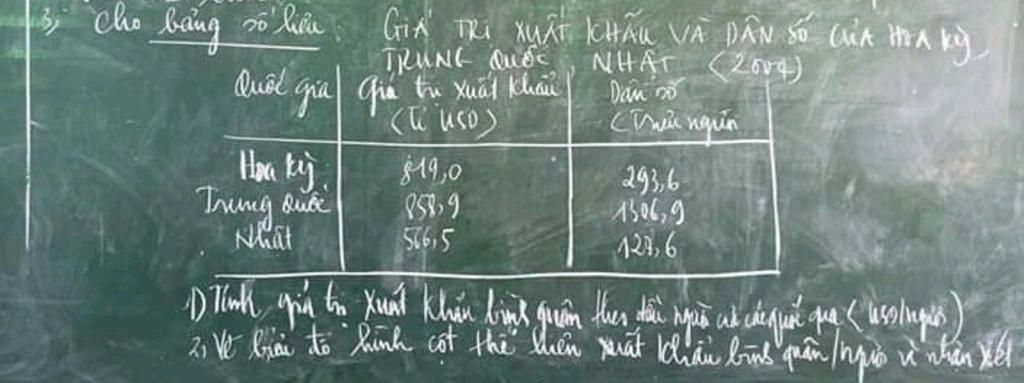 3, Cho bảng số liệu: GIÁ TRỊ XUẤT KHẨU VÀ DÂN SỐ CỦA HOA KỲ,
TRUNG QUỐC, NHẬT (2004)
Quốc gia Giá trị xuất khẩu Dân số
(Tỉ USD) (Triệu người
Hoa Kỳ 819,0 293,6
Trung Quốc 858,9 1306,9
Nhật 566,5 127,6
1) Tính giá trị xuất khẩu bình quân theo đầu người các quốc gia (USD/người)
2, Vẽ biểu đồ hình cột thể hiện xuất khẩu bình quân/người và nhận xét